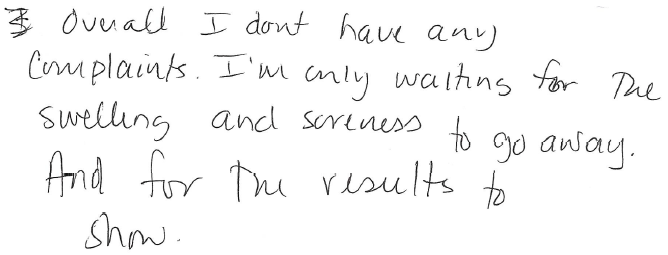 Overall I dont have any
Complaints. I'm only waiting for The
swelling and soreness to go away.
And for The results to
show.